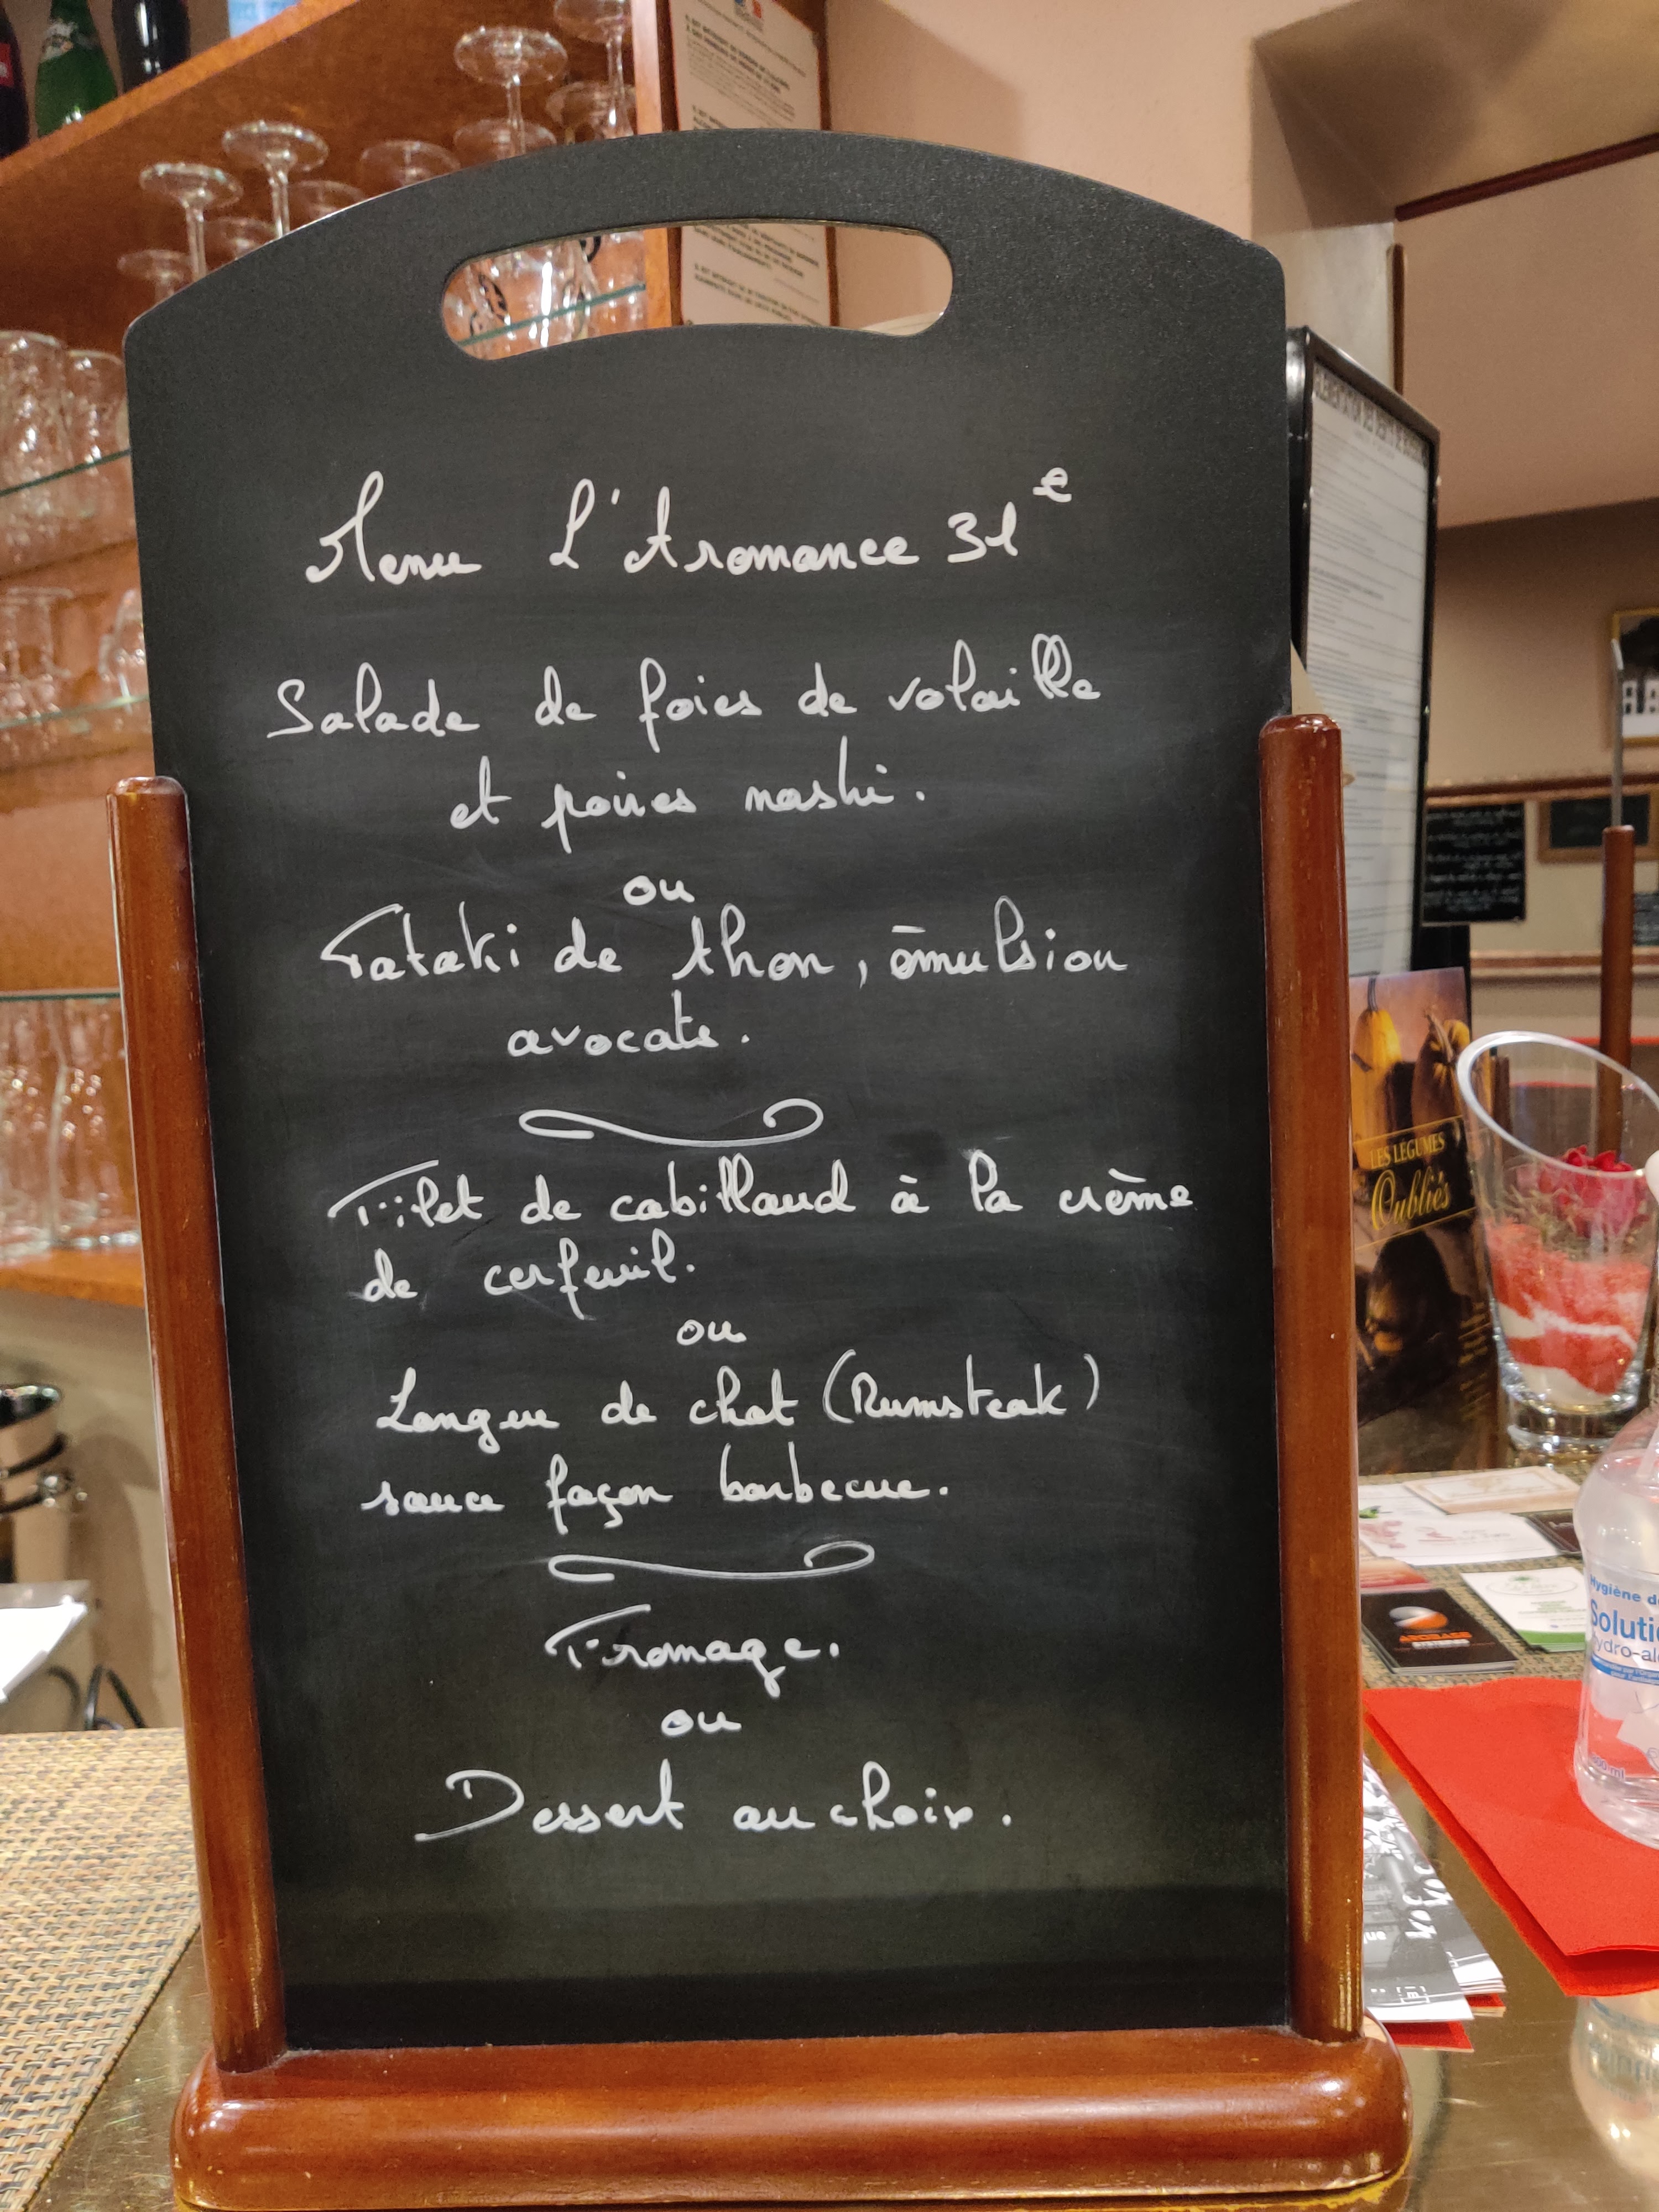 Menu L'Aromance 31€
Salade de foies de volaille
et poires nashi.
ou
Tataki de thon, émulsion
avocats.
Filet de cabillaud à la crème
de cerfeuil.
ou
Langue de chat (Rumsteak)
sauce façon barbecue.
Fromage.
ou
Dessert au choix.
LES LÉGUMES
Oubliés
Hygiène de
Soluti
ydro-al